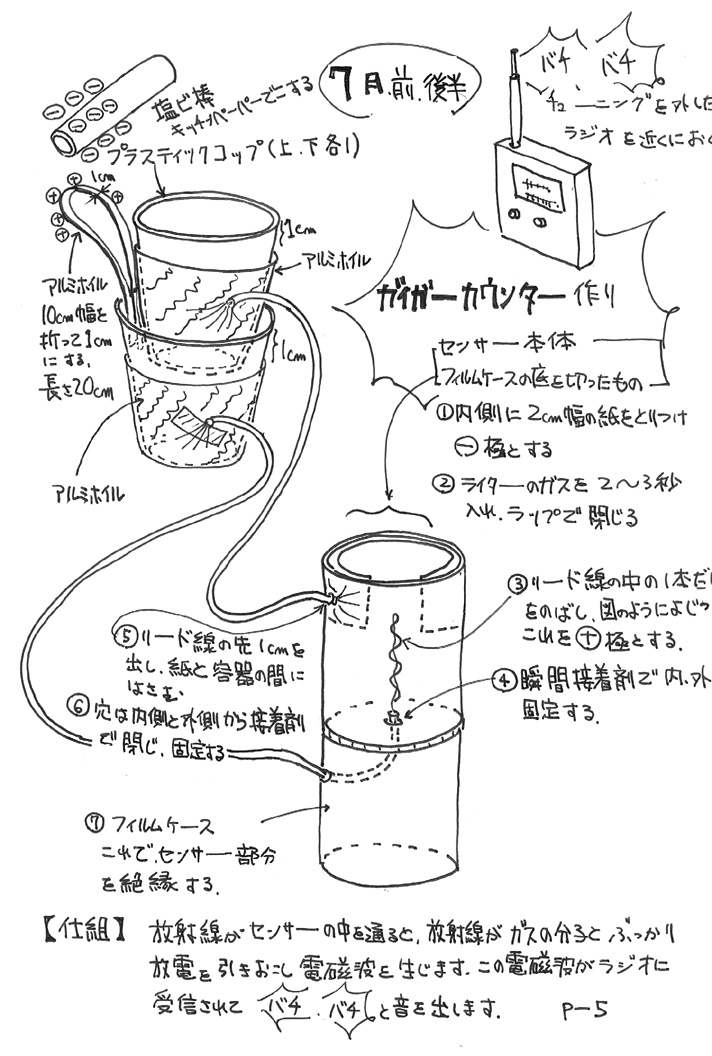 7月.前.後半
バチ バチ
チューニングを外した
ラジオを近くにおく
塩ビ棒
キッチンペーパーでこする
プラスティックコップ(上.下各1)
1cm
1cm
アルミホイル
アルミホイル
10cm幅を
折って1cm
にする.
長さ20cm
1cm
アルミホイル
ガイガーカウンター作り
センサー本体
フィルムケースの底を切ったもの
①内側に2cm幅の紙をとりつけ
⊖極とする
②ライターのガスを2〜3秒
入れ.ラップで閉じる
③リード線の中の1本だけ
をのばし.図のようによじっ
これを⊕極とする.
④瞬間接着剤で内.外
固定する.
⑤リード線の先1cmを
出し.紙と容器の間に
はさむ
⑥穴は内側と外側から接着剤
で閉じ.固定する
⑦フィルムケース
これで.センサー部分
を絶縁する.
【仕組】 放射線がセンサーの中を通ると,放射線がガスの分子とぶつかり
放電を引きおこし電磁波を生じます.この電磁波がラジオに
受信されて バチ.バチ と音を出します. P-5